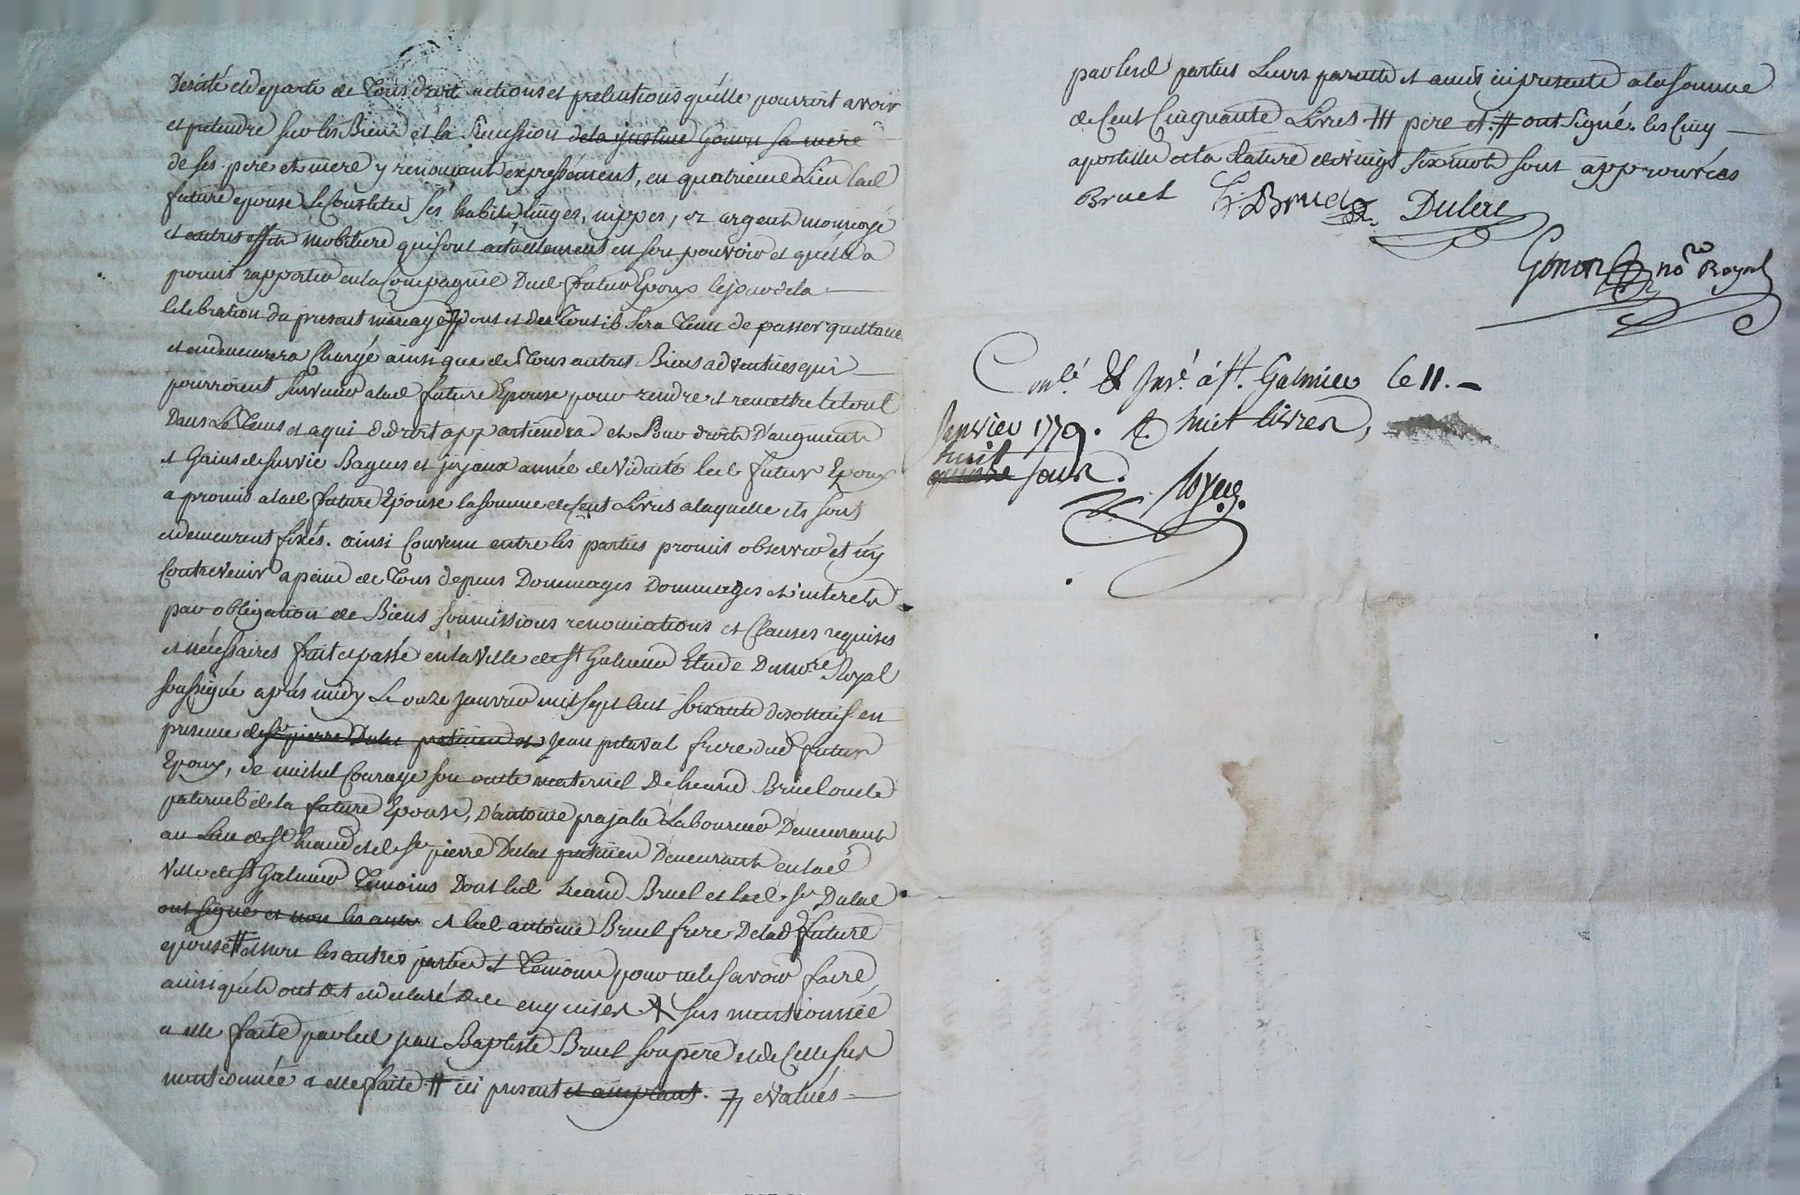 Desisté et departé de Tous droit actions et pretentions qu'elle pourroit avoir
et pretendre sur les Biens et la succession de la justine Gonon sa mere
de ses pere et mere y renonçant expressement, en quatrieme Lieu lad
future epouse se Constitue ses habits linges, nippes, et argent monnoyé
et autres effets mobiliers qui sont actuellement en son pouvoir et qu'elle a
promis rapporter en la Compagnie Dud futur Epoux le jour de la
Celebration du present mariage 7 dont et du Tout il sera Tenu de passer quittance
et en demeurera Chargé ainsi que de Tous autres Biens adventifs qui
pourroient survenir a lad future Epouse pour rendre et remettre le tout
Dans Le Tems et a qui de droit appartiendra et Pour droits D'augment
et Gains de survie Bagues et joyaux année de viduité led futur Epoux
a promis a lad future Epouse la somme de Cent Livres a laquelle ils sont
et demeurent fixés. ainsi Convenu entre les parties promis observer et n'y
Contrevenir a peine de Tous depens Dommages Dommages et interets
par obligation de Biens soumissions renonciations et Clauses requises
et nécessaires fait et passé en la ville de St Galmier Etude Du nore Royal
soussigné après midy Le onze janvier mil sept Cent soixante dixneuf en
presence de Sr pierre Dulac praticien et Jean pitaval frere dud futur
Epoux, de michel Courage son oncle maternel De heand Bruel oncle
paternel de la future Epouse, D'antoine Laboureur Demeurant
au Lieu de St heand et de Sr pierre Dulac praticien Demeurant en lad
Ville de St Galmier Temoins Dont led heand Bruel et led. Sr Dulac
ont signé et non les autres et led antoine Bruel frere De lad future
epouse # et non les autres parties et Temoins pour ne le savoir faire
ainsi qu'ils ont dit et declaré De ce enquis sus mentionnée
a elle faite par led jean Baptiste Bruel son pere et de Celle sus
mentionnée a elle faite # ici present et acceptant. 7 evalués
par lesd parties Leurs parents et amis ici presents a la somme
de Cent Cinquante Livres # pere et # ont signé. les Cinq
apostilles et la rature de vingt six mots sont approuvées
Bruel h. Bruel Dulac
Gonon nore Royal
Conlé & Insé à St. Galmier le 11.
Janvier 1779. R. huit livres,
huit
sous.